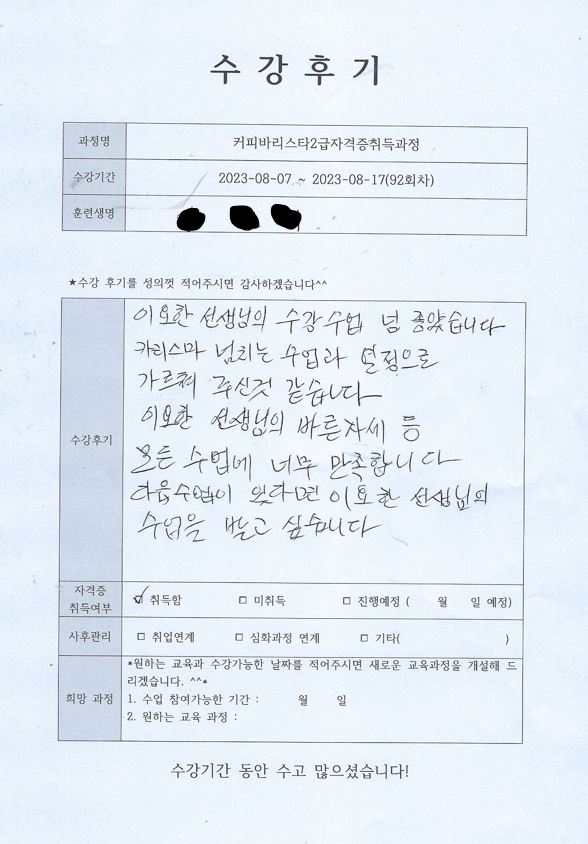 수강후기
과정명 커피바리스타2급자격증취득과정
수강기간 2023-08-07 ~ 2023-08-17(92회차)
훈련생명
★수강 후기를 성의껏 적어주시면 감사하겠습니다^^
이요한 선생님의 수강수업 넘 좋았습니다
카리스마 넘치는 수업과 열정으로
가르쳐 주신것 같습니다
이요한 선생님의 바른자세 등
수강후기
모든 수업에 너무 만족합니다
다음수업이 있다면 이요한 선생님의
수업을 받고 싶습니다
자격증 취득여부 ☑ 취득함 □ 미취득 □ 진행예정 ( 월 일 예정)
사후관리 □ 취업연계 □ 심화과정 연계 □ 기타( )
*원하는 교육과 수강가능한 날짜를 적어주시면 새로운 교육과정을 개설해 드
리겠습니다. ^^*
희망 과정 1. 수업 참여가능한 기간 : 월 일
2. 원하는 교육 과정 :
수강기간 동안 수고 많으셨습니다!